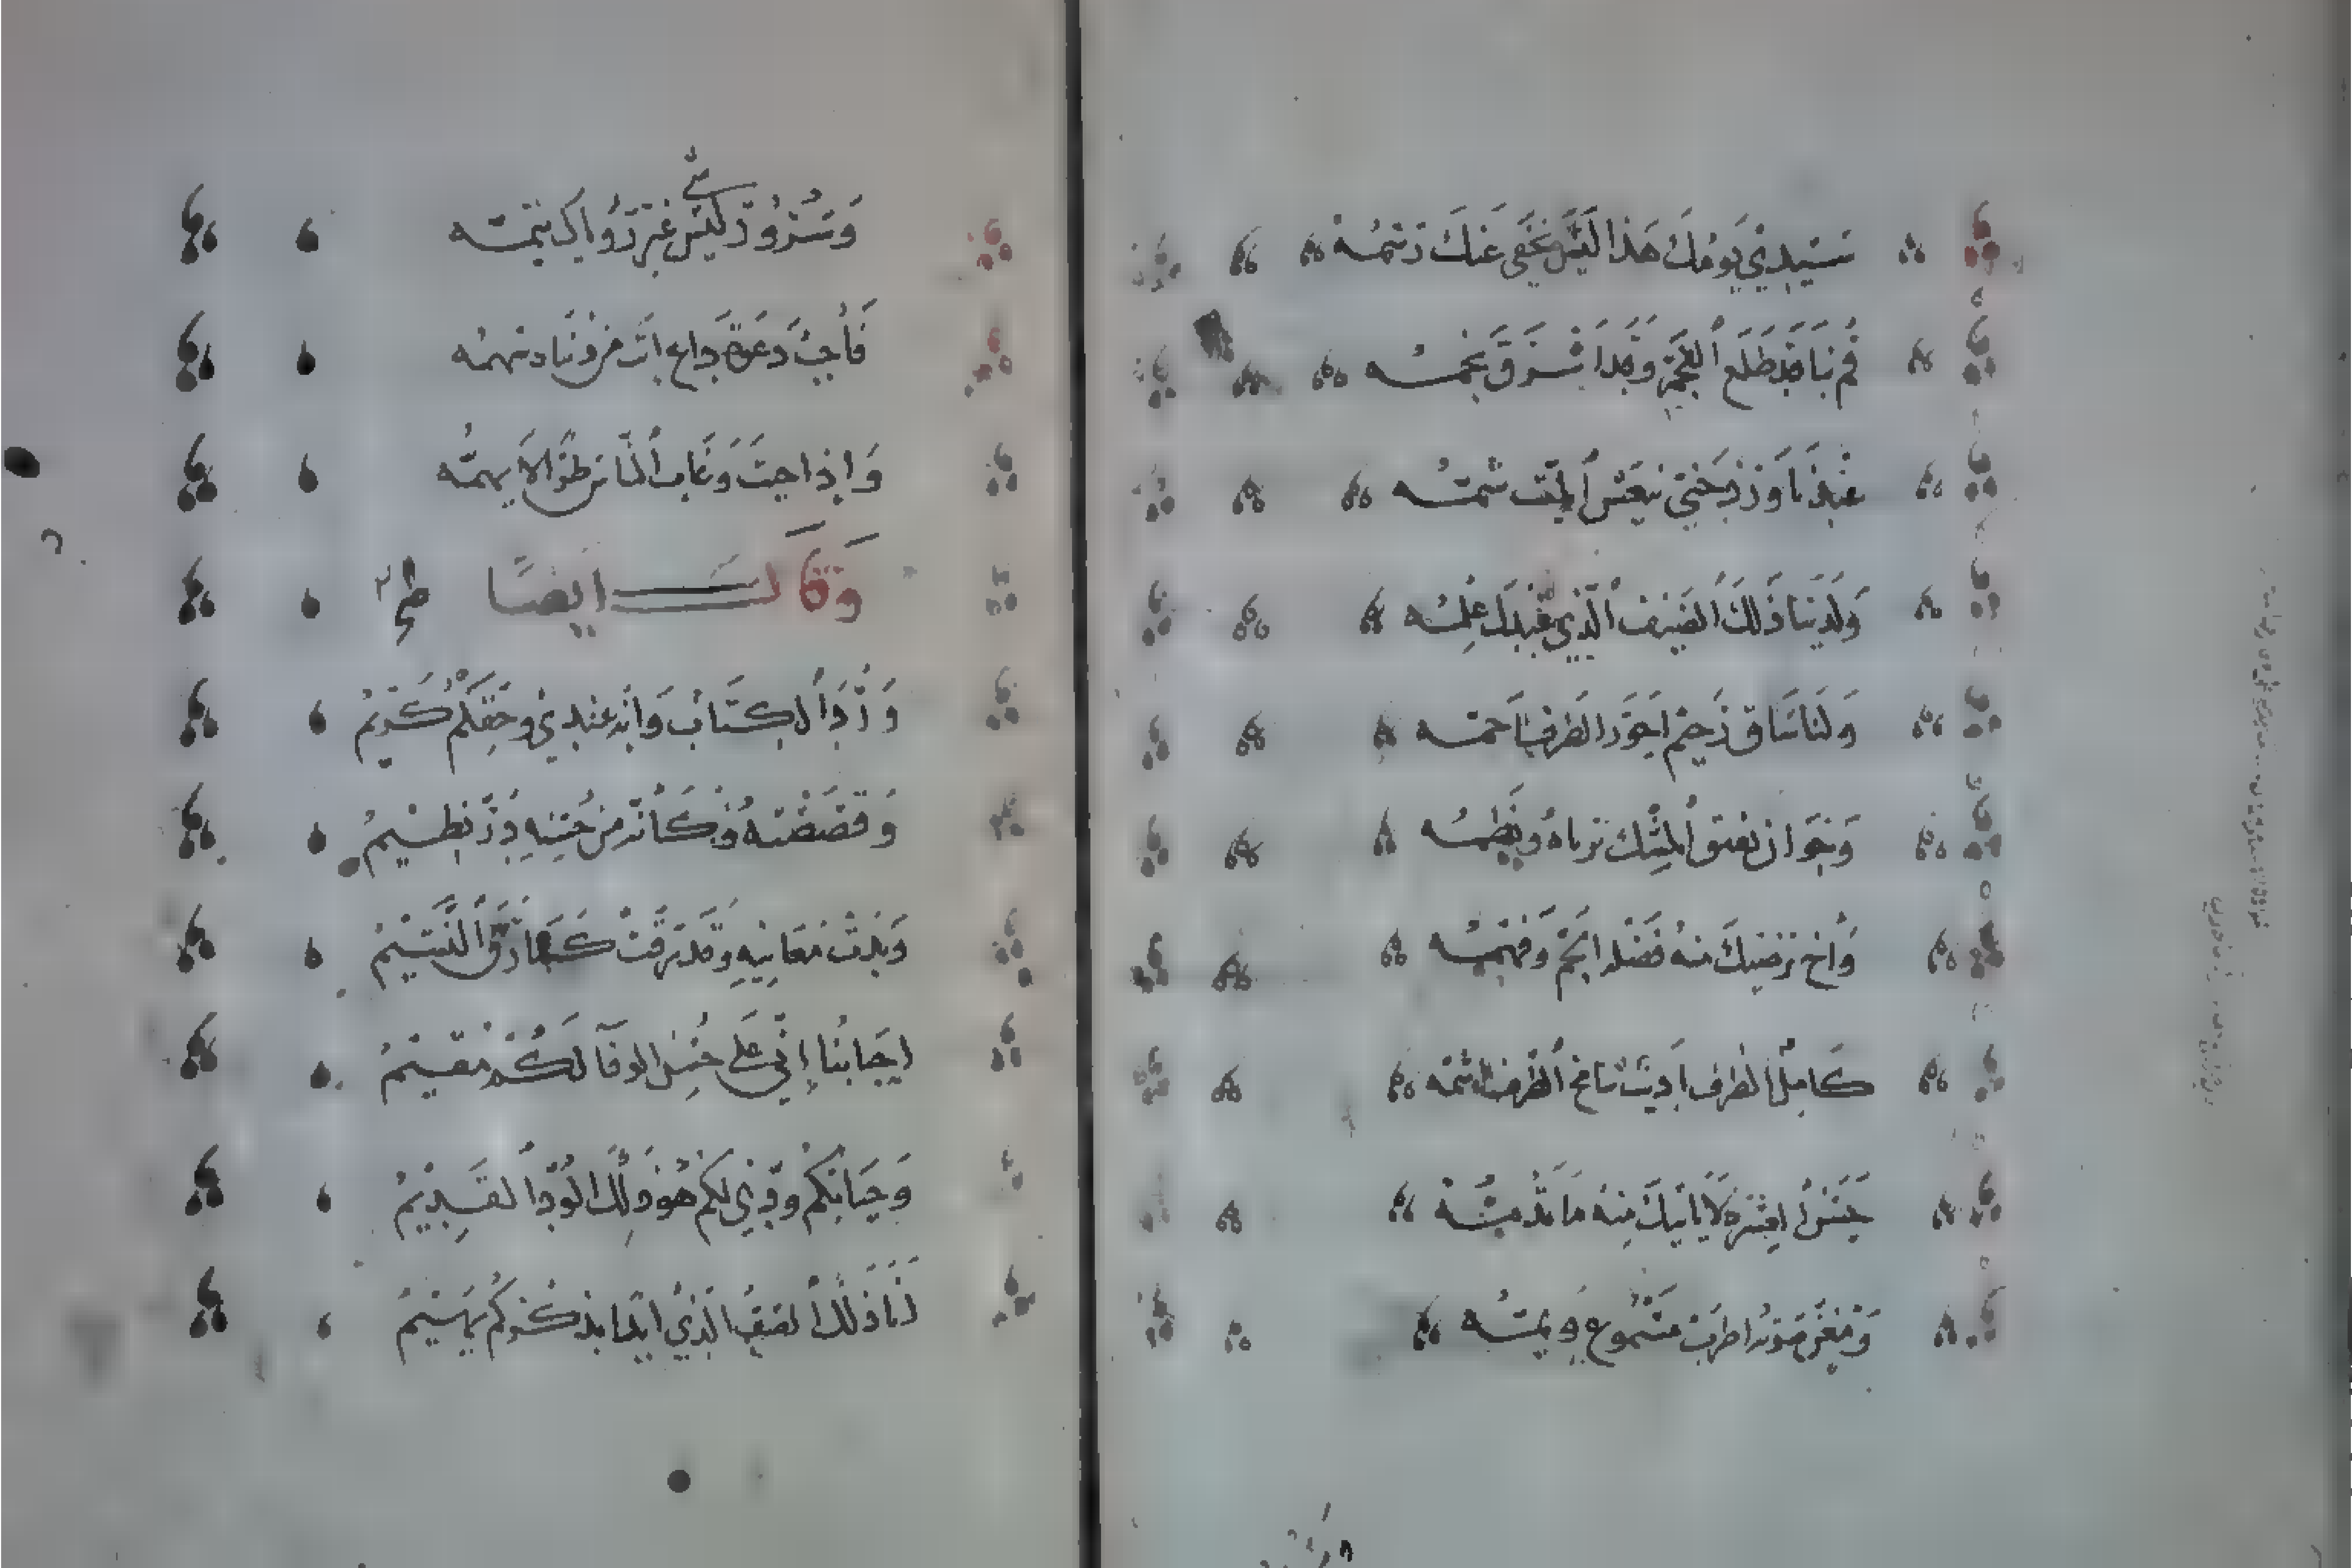 سَيّدي يَومُكَ هَذا لَيسَ يَخفى عَنكَ رَسمُهْ
قُم بِنا قَد طَلَعَ الفَجرُ وَقَد أَشرَقَ نَجمُه
عِندَنا وَردٌ جَنِيٌّ يُنعِشُ المَيّتَ شَمُّه
وَلَدَينا ذَلِكَ الضَيفُ الَّذي عِندَكَ عِلمُه
وَلَنا ساقٍ رَخيم أَحوَر الطَرفِ أَحَمُّه
وَخِوان يَعبَقُ المِسك بِرَيّاهُ وَطَعمُه
وَأَخ يُرضيكَ مِنهُ فَضلُهُ الجَمُّ وَفَهمُه
كامِلُ الظَرفِ أَديبٌ شامِخُ الأَنفِ أَشَمُّه
حَسَنُ العِشرَةِ لا يَأتيكَ مِنهُ ما تَذُمُّه
وَمُغَنٍّ مِزهَرٍ أَطرَب مَسموع وَبَمُّه
وَسُرورٌ لَيسَ شَيءٌ غَيرَ رُؤياكَ يُتِمُّه
فَأَجِب دَعوَةَ داعٍ أَنتَ مِن دُنياهُ سَهمُه
وَإِذا جِئتَ وَغابَ الناسُ طُرّاً لا يُهِمُّه
وَقَالَ أَيضًا
وَرَدَ الكِتابُ وَإِنَّهُ عِندي وَحَقِّكُمُ كَريمُ
وَفَضَضتُهُ فَكَأَنَّهُ مِن حُسنِهِ دُرٌّ نَظيمُ
وَبَدَت مَعانيهِ وَقَد رَقَّت كَما رَقَّ النَسيمُ
أَحبابَنا إِنّي عَلى حُسنِ الوَفا لَكُمُ مُقيمُ
وَحَياتِكُم وُدّي لَكُم هُوَ ذَلِكَ الوُدُّ القَديمُ
أَنا ذَلِكَ الصَبُّ الَّذي أَبَداً بِذِكرِكُمُ يَهيمُ